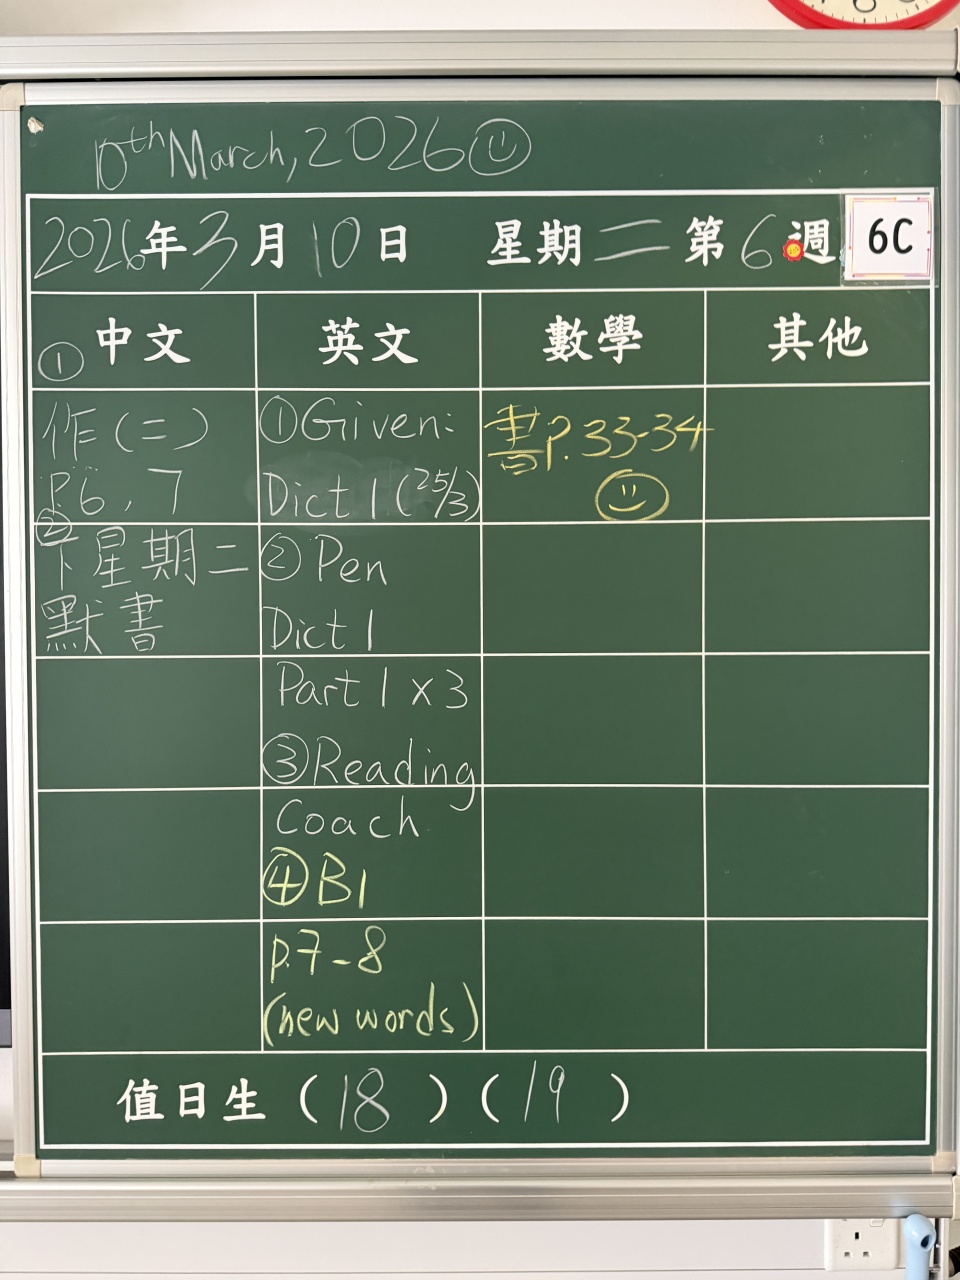 10th March, 2026
2026年3月10日 星期二 第6週 6C
① 中文 英文 數學 其他
作(二)
P.6, 7
② 下星期二
默書
① Given:
Dict 1 (25/3)
② Pen
Dict 1
Part 1 x 3
③ Reading
Coach
④ B1
p.7-8
(new words)
書p.33-34
值日生 (18) (19)